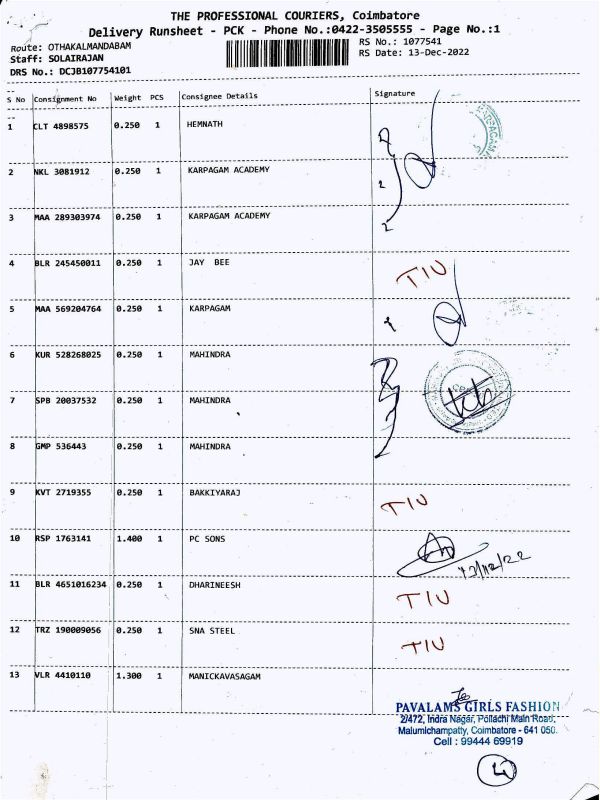 THE PROFESSIONAL COURIERS, Coimbatore
Delivery Runsheet - PCK - Phone No.:0422-3505555 - Page No.:1
Route: OTHAKALMANDABAM RS No.: 1077541
Staff: SOLAIRAJAN RS Date: 13-Dec-2022
DRS No.: DCJB107754101
S No Consignment No Weight PCS Consignee Details Signature
1 CLT 4898575 0.250 1 HEMNATH
2 NKL 3081912 0.250 1 KARPAGAM ACADEMY
3 MAA 289303974 0.250 1 KARPAGAM ACADEMY
4 BLR 245450011 0.250 1 JAY BEE TIU
5 MAA 569204764 0.250 1 KARPAGAM
6 KUR 528268025 0.250 1 MAHINDRA
7 SPB 20037532 0.250 1 MAHINDRA
8 GMP 536443 0.250 1 MAHINDRA
9 KVT 2719355 0.250 1 BAKKIYARAJ TIU
10 RSP 1763141 1.400 1 PC SONS
13/12/22
11 BLR 4651016234 0.250 1 DHARINEESH TIU
12 TRZ 190009056 0.250 1 SNA STEEL TIU
13 VLR 4410110 1.300 1 MANICKAVASAGAM
PAVALAMS GIRLS FASHION
2/472, Indra Nagar, Pollachi Main Road,
Malumichampatty, Coimbatore - 641 050.
Cell : 99444 69919